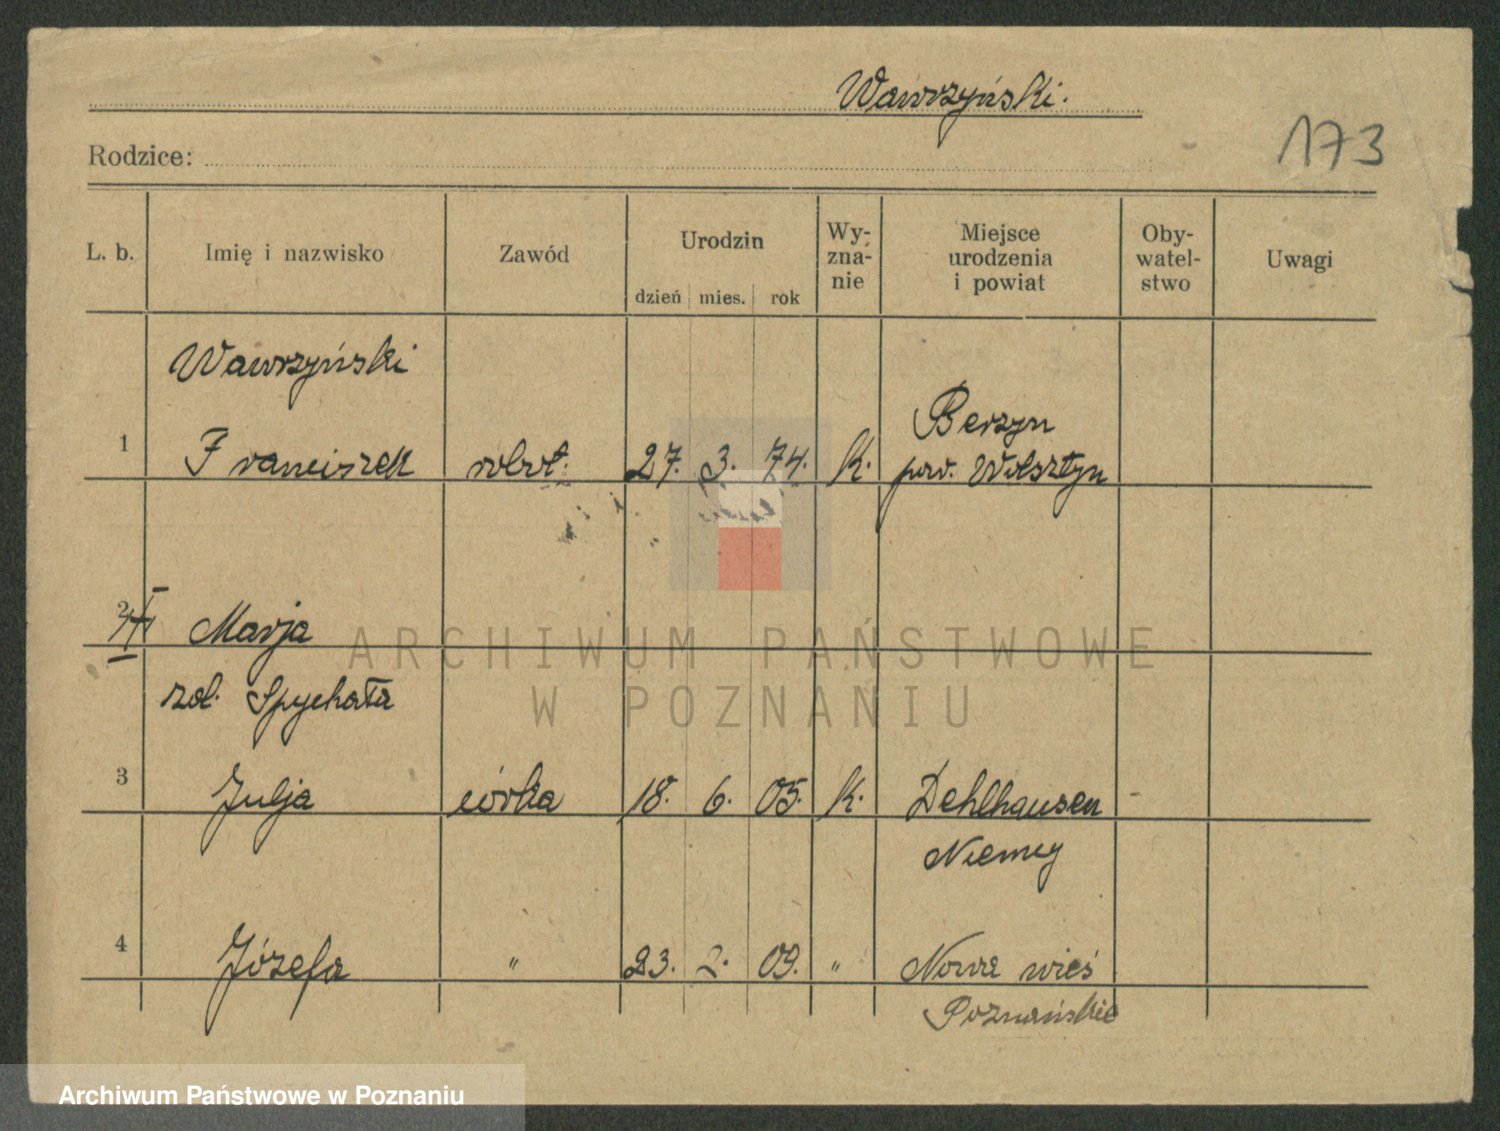 Wawrzyński.
173
Rodzice:
L. b. Imię i nazwisko Zawód Urodzin dzień mies. rok Wy-zna-nie Miejsce urodzenia i powiat Oby-watel-stwo Uwagi
Wawrzyński
1 Franciszek robot. 27. 3. 74. K. Berzyn
pow. Wolsztyn
2 Marja
zd. Spychała
3 Julja córka 18. 6. 05. K. Dehlhausen
Niemcy
4 Józefa " 23. 2. 09. " Nowa wieś
Poznańskie
ARCHIWUM PAŃSTWOWE
W POZNANIU
Archiwum Państwowe w Poznaniu